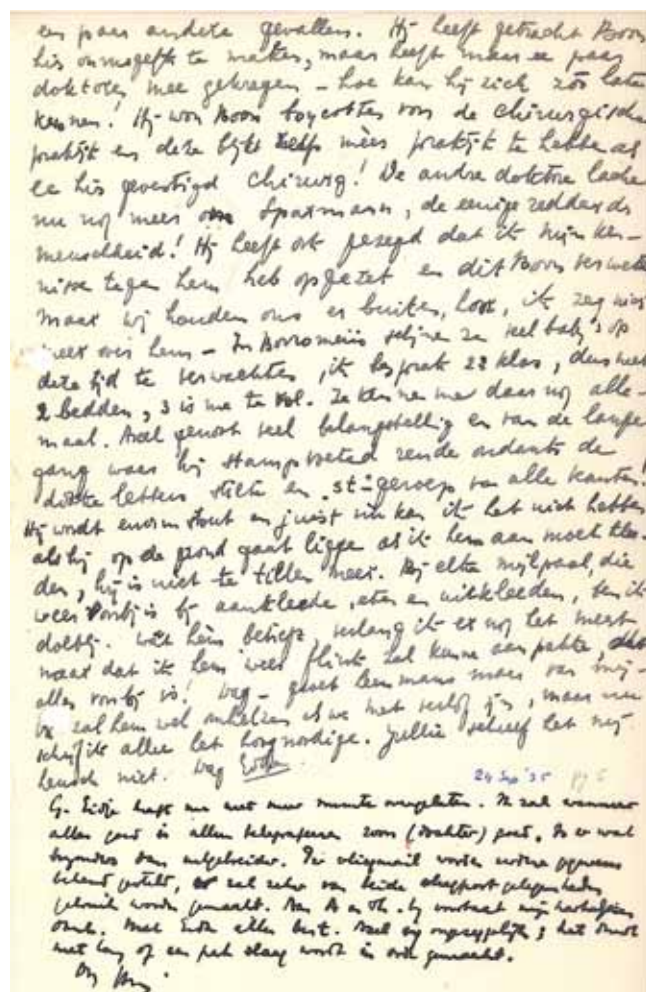 een paar andere gevallen. Hij heeft getracht Boon
hier onmogelijk te maken, maar heeft maar een paar
doktoren mee gekregen – hoe kan hij zich zóó laten
kennen! Hij wou Boon boycotten van de chirurgische
praktijk en deze blijkt zelfs méér praktijk te hebben als
een hier gevestigd chirurg! De andre doktoren lachen
nu nog meer om Sparmann, de eenige redder der
menschheid! Hij heeft ook gezegd dat ik mijn ken-
nissen tegen hem heb opgezet en dit Boon
Maar wij houden ons er buiten, hoor, ik zeg niets
meer over hem – In Borromeüs schijnen ze veel baby's op
deze tijd te verwachten, ik besprak 2e klas, dus met
2 bedden, 3 is me te vol. Ze kennen me daar nog alle-
maal. Axel genoot veel belangstelling en van de lange
gang waar hij stampvoetend rende ondanks de
dikke letters stilte en "st"-geroep van alle kanten!
Hij wordt enorm stout en juist nu kan ik het niet hebben
als hij op de grond gaat liggen als ik hem aan moet klee-
den, hij is niet te tillen meer. Bij elke mijlpaal, die
weer voorbij is bij aankleeden, eten en uitkleeden, ben ik
dolblij. Wat hem betreft, verlang ik er nog het meest
naar dat ik hem weer flink zal kunnen aanpakken, als
alles voorbij is! Dag – groet leenmans maar van mij –
We zal hem wel omhelzen als we met verlof zijn, maar nu
schrijf ik alleen het hoognoodige. Jullie schreef het mij
heusch niet. Dag Edth
24 Sep '35 pg 5
G. Eidje heeft me niet meer ruimte overgelaten. Ik zal wanneer
alles goed is alleen telegrafeeren zoon (dochter) goed. Is er wat
bijzonders dan uitgebreider. Per vliegmail worden verdere gegevens
bekend gesteld, er zal zeker van beide gelegenheden
gebruik worden gemaakt. Aan A en Oh. bij voorbaat mijn hartelijken
dank. Met Edth alles best. Axel erg ; het wordt
met lang of een pak slaag wordt in orde gemaakt.